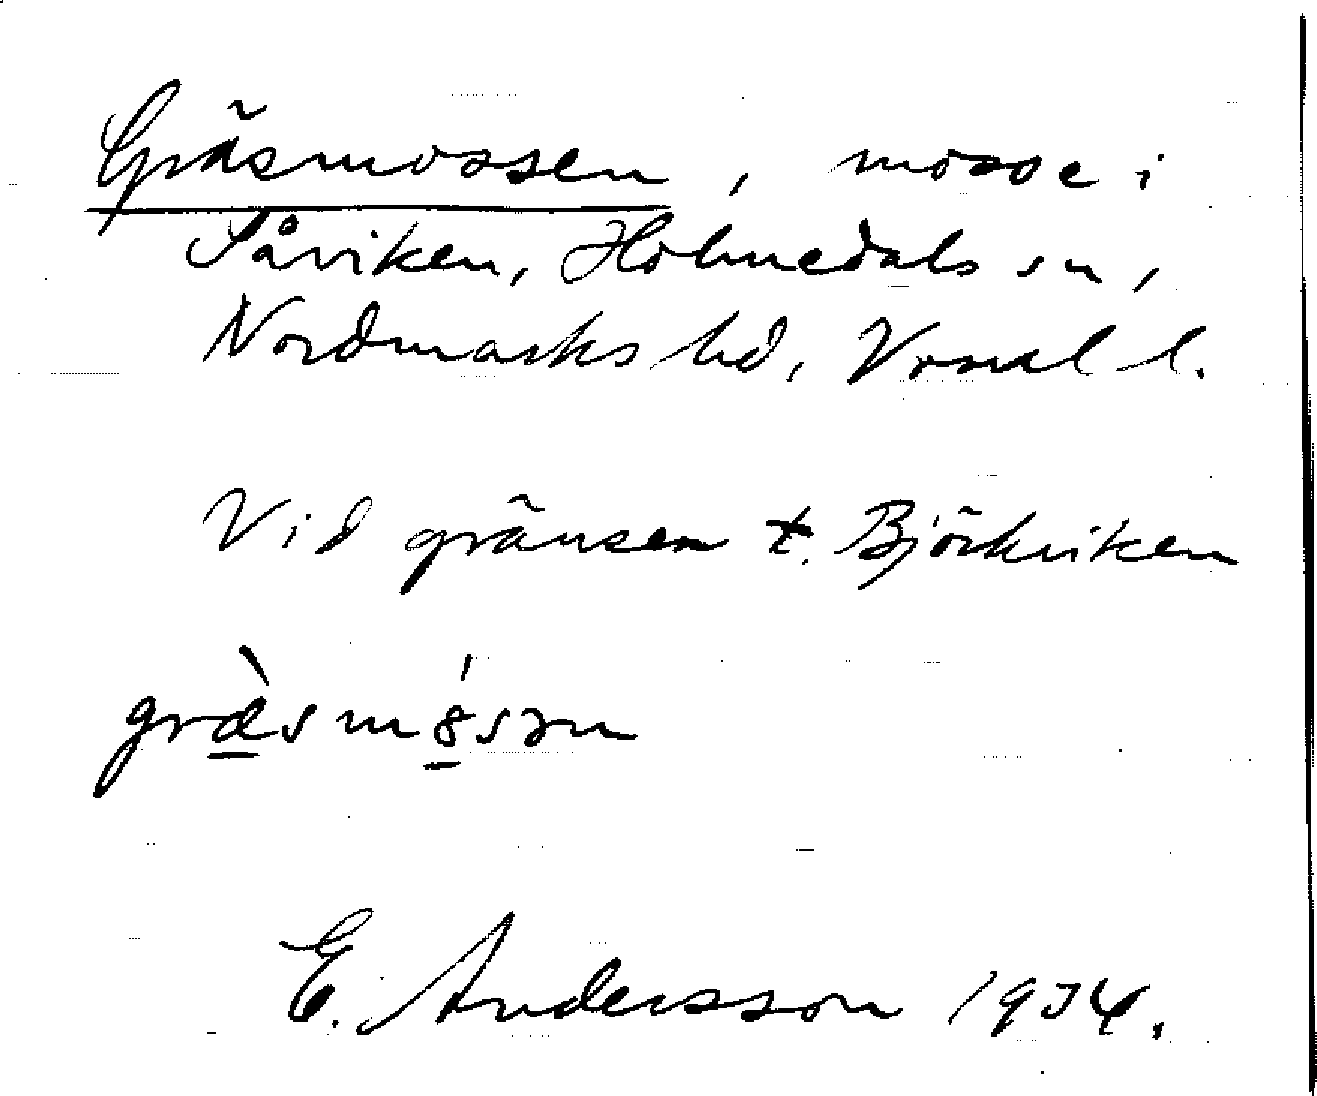 Gräsmossen, mosse i
Såviken, Holmedals sn,
Nordmarks hd, Vrml l.
Vid gränsen t. Björkviken
græ̀sm8́sən
E. Andersson 1934.